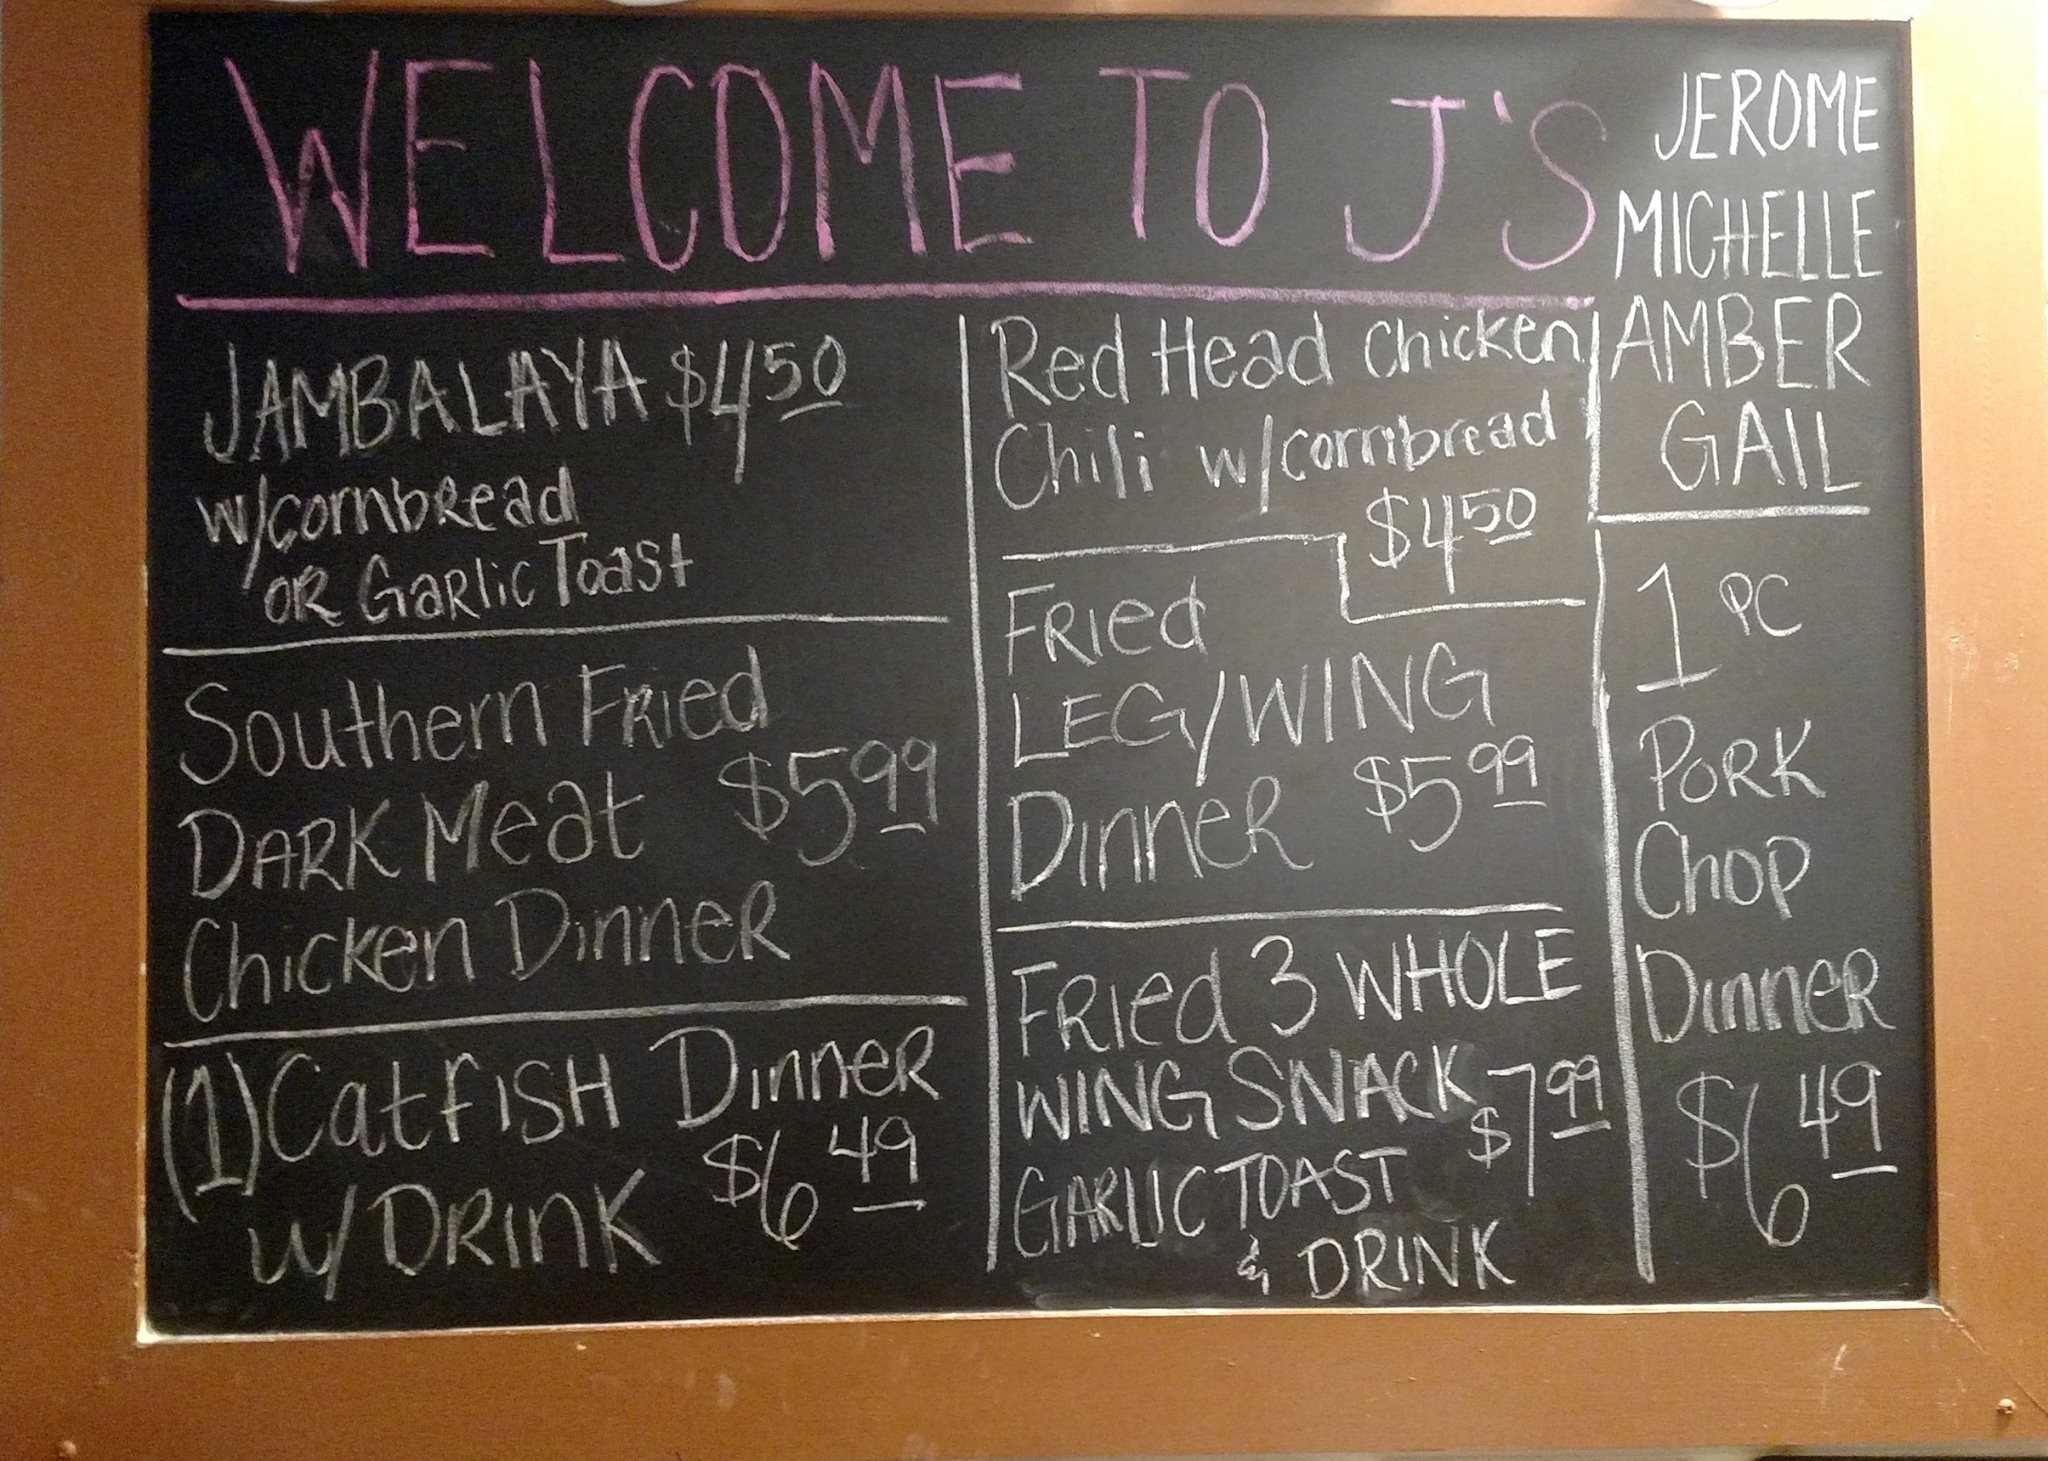 WELCOME TO J'S
JEROME
MICHELLE
AMBER
GAIL
JAMBALAYA $4 50
w/cornbread
OR Garlic Toast
Southern Fried
DARK Meat $5 99
Chicken Dinner
(1) Catfish Dinner
w/ DRINK $6 49
Red Head Chicken
Chili w/cornbread
$4 50
Fried
LEG/WING
Dinner $5 99
Fried 3 WHOLE
WING SNACK $7 99
GARLIC TOAST
& DRINK
1 PC
PORK
Chop
Dinner
$6 49